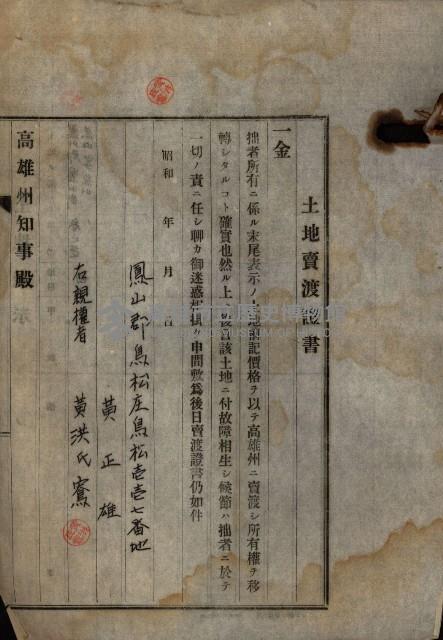 土地賣渡證書
一金
拙者所有ニ係ル末尾表示ノ土地前記價格ヲ以テ高雄州ニ賣渡シ所有權ヲ移
轉シタルコト確實也然ル上ハ後日該土地ニ付故障相生シ候節ハ拙者ニ於テ
一切ノ責ニ任シ聊カ御迷惑相掛ケ申間敷爲後日賣渡證書仍如件
昭和 年 月 日
鳳山郡鳥松庄鳥松壱壱七番地
黃正雄
右親權者 黃洪氏寫
高雄州知事殿